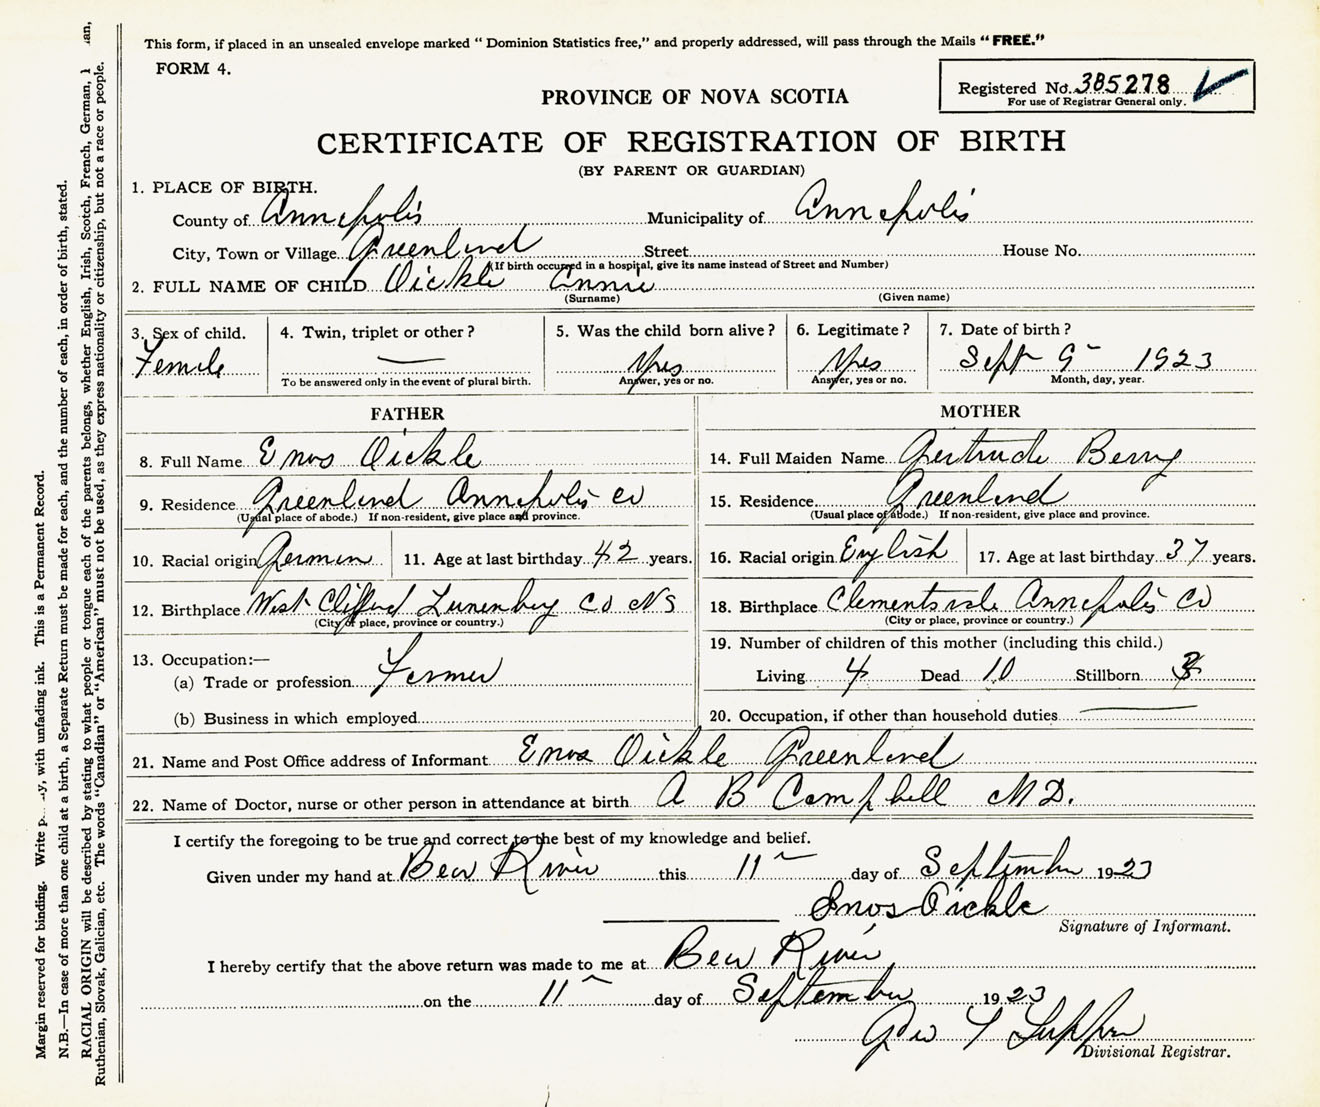 This form, if placed in an unsealed envelope marked “ Dominion Statistics free,” and properly addressed, will pass through the Mails “FREE.”
FORM 4.
Registered No. 385278
For use of Registrar General only.
PROVINCE OF NOVA SCOTIA
CERTIFICATE OF REGISTRATION OF BIRTH
(BY PARENT OR GUARDIAN)
1. PLACE OF BIRTH.
County of Annapolis Municipality of Annapolis
City, Town or Village Greenland Street House No.
(If birth occurred in a hospital, give its name instead of Street and Number)
2. FULL NAME OF CHILD Oickle Annie
(Surname) (Given name)
3. Sex of child. 4. Twin, triplet or other ? 5. Was the child born alive ? 6. Legitimate ? 7. Date of birth ?
Female — Yes Yes Sept 9 1923
To be answered only in the event of plural birth. Answer, yes or no. Answer, yes or no. Month, day, year.
FATHER
8. Full Name Enos Oickle
9. Residence Greenland Annapolis Co
(Usual place of abode.) If non-resident, give place and province.
10. Racial origin German 11. Age at last birthday 42 years.
12. Birthplace West Clifford Lunenburg Co NS
(City or place, province or country.)
13. Occupation:—
(a) Trade or profession Farmer
(b) Business in which employed
MOTHER
14. Full Maiden Name Gertrude Berry
15. Residence Greenland
(Usual place of abode.) If non-resident, give place and province.
16. Racial origin English 17. Age at last birthday 37 years.
18. Birthplace Clementsvale Annapolis Co
(City or place, province or country.)
19. Number of children of this mother (including this child.)
Living 4 Dead 10 Stillborn
20. Occupation, if other than household duties —
21. Name and Post Office address of Informant Enos Oickle Greenland
22. Name of Doctor, nurse or other person in attendance at birth A B Campbell M.D.
I certify the foregoing to be true and correct to the best of my knowledge and belief.
Given under my hand at Bear River this 11 day of September 1923
Enos Oickle
Signature of Informant.
I hereby certify that the above return was made to me at Bear River
on the 11 day of September 1923
Geo
Divisional Registrar.
Margin reserved for binding. Write with unfading ink. This is a Permanent Record.
N.B.—In case of more than one child at a birth, a Separate Return must be made for each, and the number of each, in order of birth, stated.
RACIAL ORIGIN will be described by stating to what people or tongue each of the parents belongs, whether English, Irish, Scotch, French, German,
Ruthenian, Slovak, Galician, etc. The words “Canadian” or “American” must not be used, as they express nationality or citizenship, but not a race or people.